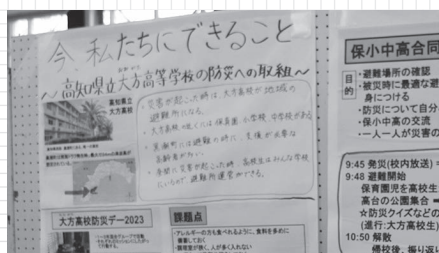 今 私たちにできること
～高知県立大方高等学校の防災への取組～
高知県立
大方高校
・災害が起こった時は、大方高校が地域の
避難所になる。
・大方高校の近くには保育園、小学校、中学校がある
・黒潮町には避難の時に、支援が必要な
高齢者が多い。
・身替に災害が起こった時、高校生はみんな学校
にいるので、避難所運営ができる。
大方高校防災デー2023
課題点
・アレルギーの方も食べれるように、食料を多めに
備蓄しておく
・調理室が狭く、人が多く入れない
保小中高合同
目的
・避難場所の確認
・被災時に最適な避
身につける
・防災について自分
・保小中高の交流
・一人一人が災害の
9:45 発災(校内放送)
9:48 避難開始
保育園児を高校生
高台の公園集合
☆防災クイズなどの
(進行:大方高校生)
10:50 解散
帰校後、振り返り